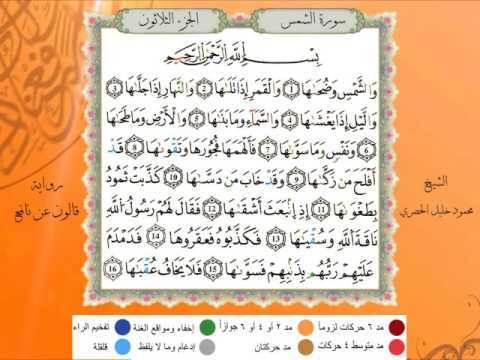 سورة الشمس
الجزء الثلاثون
بِسْمِ اللَّهِ الرَّحْمَٰنِ الرَّحِيمِ
وَالشَّمْسِ وَضُحَىٰهَا ① وَالْقَمَرِ إِذَا تَلَىٰهَا ② وَالنَّهَارِ إِذَا جَلَّىٰهَا ③
وَالَّيْلِ إِذَا يَغْشَىٰهَا ④ وَالسَّمَآءِ وَمَا بَنَىٰهَا ⑤ وَالْأَرْضِ وَمَا طَحَىٰهَا
⑥ وَنَفْسٍ وَمَا سَوَّىٰهَا ⑦ فَأَلْهَمَهَا فُجُورَهَا وَتَقْوَىٰهَا ⑧ قَدْ
أَفْلَحَ مَن زَكَّىٰهَا ⑨ وَقَدْ خَابَ مَن دَسَّىٰهَا ⑩ كَذَّبَتْ ثَمُودُ
بِطَغْوَىٰهَا ⑪ إِذِ انۢبَعَثَ أَشْقَىٰهَا ⑫ فَقَالَ لَهُمْ رَسُولُ اللَّهِ
نَاقَةَ اللَّهِ وَسُقْيَىٰهَا ⑬ فَكَذَّبُوهُ فَعَقَرُوهَا ⑭ فَدَمْدَمَ
عَلَيْهِمْ رَبُّهُم بِذَنۢبِهِمْ فَسَوَّىٰهَا ⑮ فَلَا يَخَافُ عُقْبَىٰهَا ⑯
الشيخ
محمود خليل الحصري
رواية
قالون عن نافع
مد ٦ حركات لزوماً
مد ٢ أو ٤ أو ٦ جوازاً
إخفاء ومواقع الغنة
تفخيم الراء
مد متوسط ٤ حركات
مد حركتان
إدغام وما لا يلفظ
قلقلة